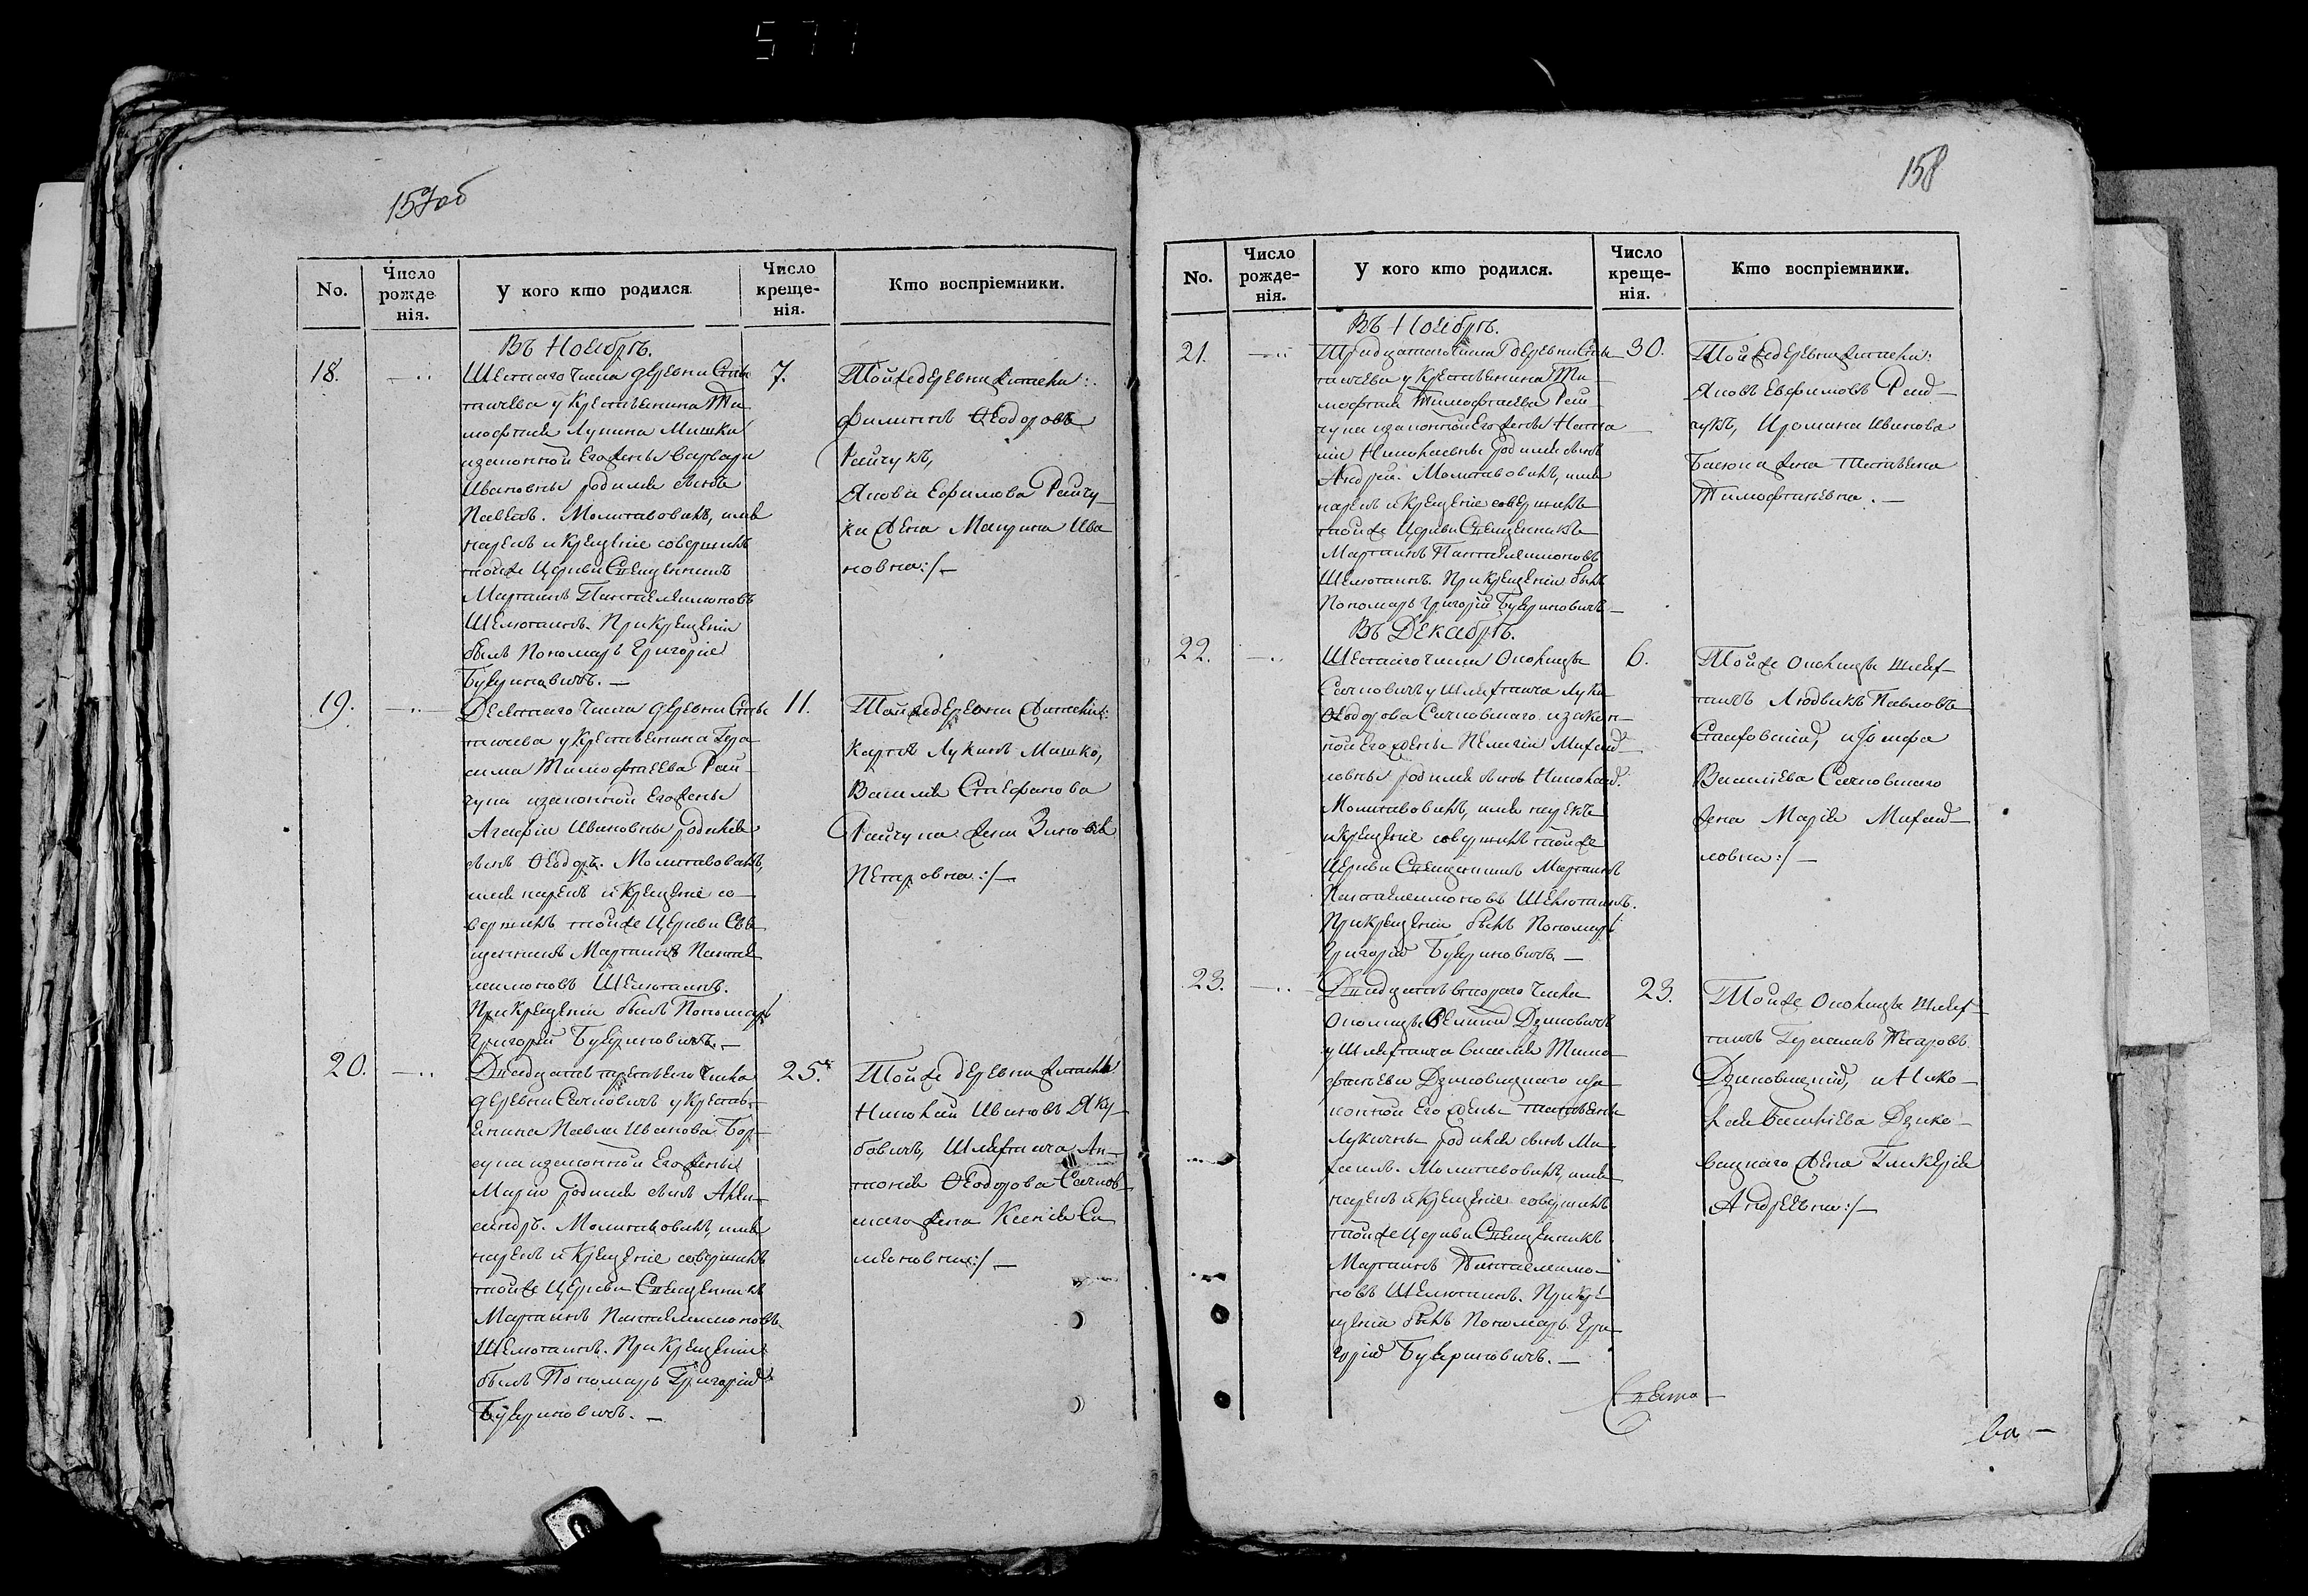 577
157об
No.
Число рожде нія.
У кого кто родился
Число креще- нія.
Кто воспріемники.
Въ Ноябрѣ.
18.
Шестаго числа деревни
у Крестьянина Ти
мофтея Лукина Мишки
изаконной Егожены Варвары
Ивановны родился сынъ
Павелъ. Молитвовалъ, имя
нарекъ и Крещеніе совершилъ
тойже Церкви Священникъ
Мартинъ Пантелеимоновъ
Шелютинъ. При Крещеніи
былъ Пономарь Григорій
7.
Тойжедеревни жители:
Филиппъ Ѳеодоровъ
Райчукъ,
Якова Ефимова Райчу-
ка жена Марина Ива
новна:/—
19.
Десятаго числа деревни
у Крестьянина Гера
сима Тимофтеева Рай-
чука изаконной Егожены
Агафіи Ивановны родился
сынъ Ѳеодоръ. Молитвовалъ,
имя нарекъ и Крещеніе со—
вершилъ тойже Церкви Свя
щенникъ Мартинъ Пантел
леимоновъ Шелютинъ.
При Крещеніи былъ Пономарь
Григорій
11.
Тойжедеревни жители:
Карпъ Лукинъ Мишко,
Василія Стефанова
Райчука жена Зиновія
Петровна:/—
20.
Двадцать третьего числа
деревни Сачковичъ у Кресть-
янина Павла Иванова Бор-
сука изаконной Егожены
Маріи родился сынъ Алек-
сандръ. Молитвовалъ, имя
нарекъ и Крещеніе совершилъ
тойже Церкви Священникъ
Мартинъ Пантелеимоновъ
Шелютинъ. При Крещеніи
былъ Пономарь Григорій
25.
Тойже деревни жители
Николай Ивановъ Яку-
бовичъ, Шляхтича Ан-
тонія Ѳеодорова Сачков-
скаго жена Ксенія Си
меоновна:/—
158
No.
Число рожде- нія.
У кого кто родился.
Число креще- нія.
Кто воспріемники.
Въ Ноябрѣ.
21.
Тридцатаго числа деревни
у Крестьянина Ти-
мофтея Тимофтеева Рай-
чука изаконной Егожены Наста
сіи Николаевны родился сынъ
Андрей. Молитвовалъ, имя
нарекъ и Крещеніе совершилъ
тойже Церкви Священникъ
Мартинъ Пантелеимоновъ
Шелютинъ. При Крещеніи былъ
Пономарь Григорій
30.
Тойжедеревни жители:
Яковъ Евфимовъ Рай-
чукъ, Иванова
жена Татьяна
Тимофтеевна.—
Въ Декабрѣ.
22.
Шестаго числа Околицы
Сачковичъ у Шляхтича Луки
Ѳеодорова Сачковскаго изакон-
ной Егожены Пелагіи Михай-
ловны родился сынъ Николай.
Молитвовалъ, имя нарекъ
и Крещеніе совершилъ тойже
Церкви Священникъ Мартинъ
Пантелеимоновъ Шелютинъ.
При Крещеніи былъ Пономарь
Григорій
6.
Тойже Околицы шлях-
тичъ Людвикъ Павловъ
иІосифа
Василіева Сачковскаго
жена Марія Михай-
ловна:/—
23.
Двадцать втораго числа
Околицы
у Шляхтича Василія Тимо-
фтеева иза
конной Егожены Татьяны
Лукины родился сынъ Ми-
хаилъ. Молитвовалъ, имя
нарекъ и Крещеніе совершилъ
тойже Церкви Священникъ
Мартинъ Пантелеимо-
новъ Шелютинъ. При Кре
щеніи былъ Пономарь Гри-
горій
23.
Тойже Околицы шлях-
тичъ Германъ Петровъ
иНико-
лая Василіева
жена Гликерія
Андреевна:/—